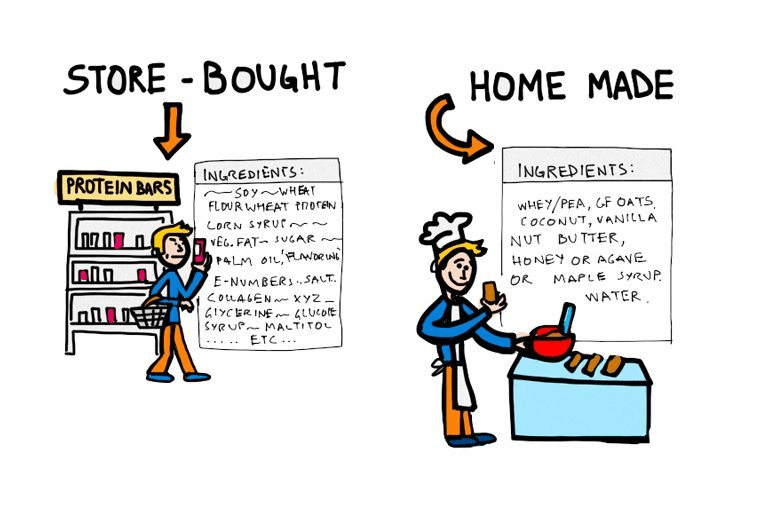 STORE - BOUGHT
PROTEIN BARS
INGREDIENTS:
~ SOY ~ WHEAT
FLOUR WHEAT PROTEIN
CORN SYRUP ~ ~
VEG. FAT ~ SUGAR ~
PALM OIL, 'FLAVORING'
E-NUMBERS.. SALT.
COLLAGEN ~ XYZ _
GLYCERINE ~ GLUCOSE
SYRUP ~ MALTITOL
..... ETC...
HOME MADE
INGREDIENTS:
WHEY/PEA, GF OATS.
COCONUT, VANILLA
NUT BUTTER,
HONEY OR AGAVE
OR MAPLE SYRUP.
WATER.